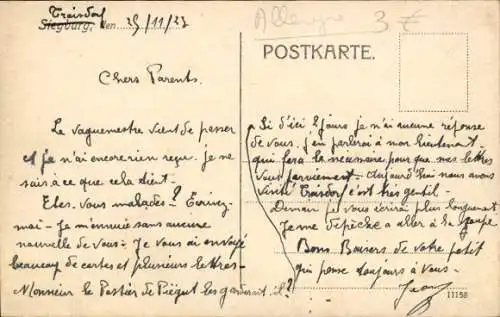 Troisdorf
Siegburg, den 25/11/23
Allemagne 3 €
POSTKARTE.
Chers Parents.
Le vaguemestre vient de passer
et je n'ai encore rien reçu. je ne
sais à ce que cela tient.
Etes vous malades? Ecrivez
moi - Je m'ennuie sans aucune
nouvelle de vous. Je vous ai envoyé
beaucoup de cartes et plusieurs lettres.
Monsieur le Postier de Piégut les garderait-il?
Si d'ici 2 jours je n'ai aucune réponse
de vous, j'en parlerai à mon lieutenant
qui fera le nécessaire pour que mes lettres
vous parviennent. Aujourd'hui nous avons
visité Troisdorf c'est très gentil -
Demain je vous écrirai plus longuement
Je me dépêche a aller à la soupe
Bons Baisers de votre petit
qui pense toujours à vous -
Jean
11158